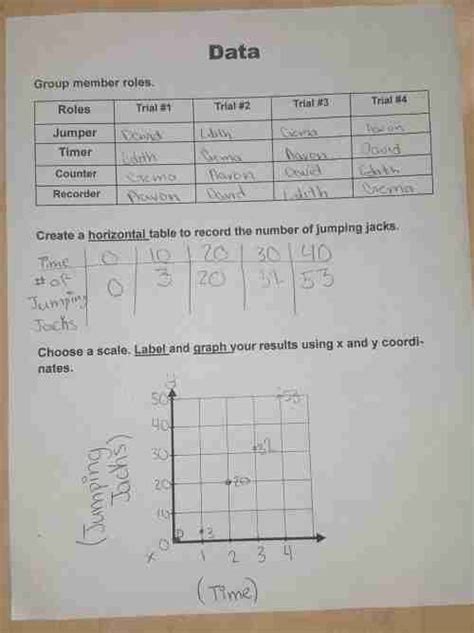 Data
Group member roles.
Roles Trial #1 Trial #2 Trial #3 Trial #4
Jumper David Edith Gema Aavon
Timer Edith Gema Aavon David
Counter Gema Aavon David Edith
Recorder Aavon David Edith Gema
Create a horizontal table to record the number of jumping jacks.
Time 0 10 20 30 40
# of Jumping Jacks 0 3 20 32 53
Choose a scale. Label and graph your results using x and y coordi-
nates.
y
50 53
40
30 32
20 20
10
0 0 3
x 1 2 3 4
(Jumping Jacks)
(Time)